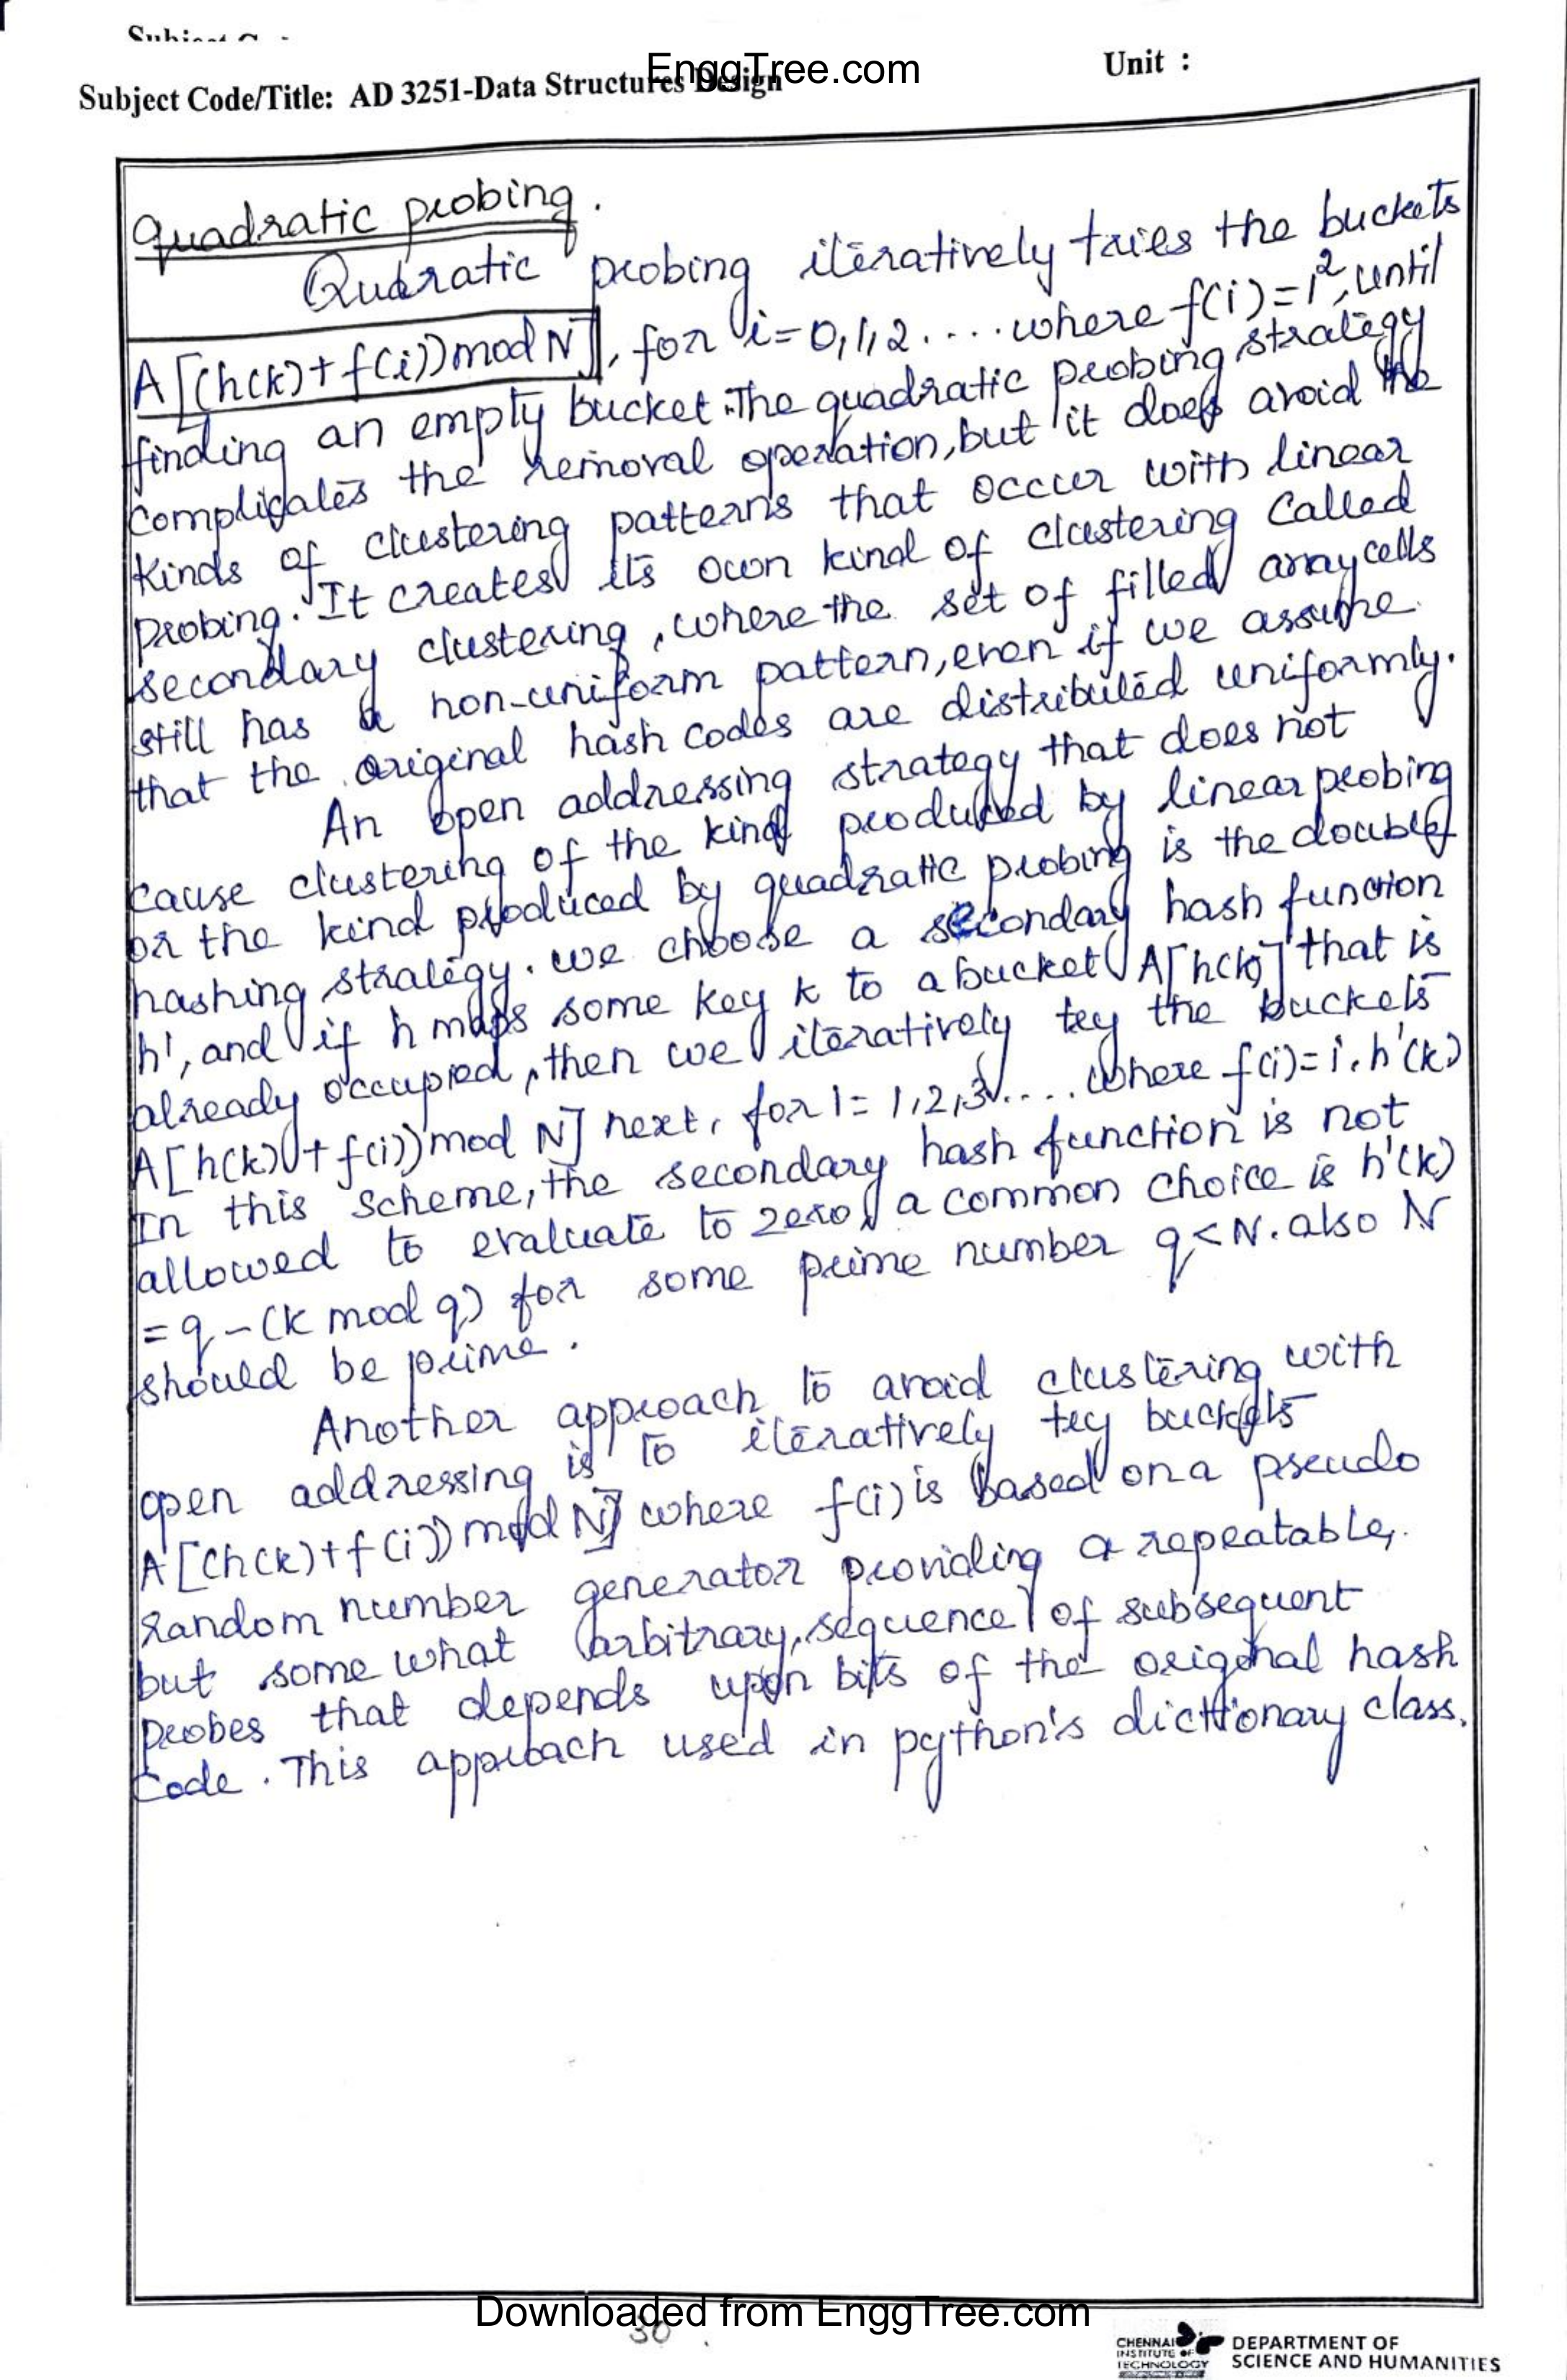 EnggTree.com
Unit :
Subject Code/Title: AD 3251-Data Structures Design
Quadratic probing.
Qudratic probing iteratively tries the buckets
A[(h(k)+f(i)) mod N], for i=0,1,2.... where f(i)=i², until
finding an empty bucket. The quadratic probing strategy
complicates the removal operation, but it does avoid the
kinds of clustering patterns that occur with linear
probing. It creates its own kind of clustering called
secondary clustering, where the set of filled array cells
still has a non-uniform pattern, even if we assume
that the original hash codes are distributed uniformly.
An open addressing strategy that does not
cause clustering of the kind produced by linear probing
or the kind produced by quadratic probing is the double
hashing strategy. we choose a secondary hash function
h', and if h maps some key k to a bucket A[h(k)] that is
already occupied, then we iteratively try the buckets
A[h(k)+f(i)) mod N] next, for i=1,2,3..... where f(i)=i.h'(k)
In this scheme, the secondary hash function is not
allowed to evaluate to zero, a common choice is h'(k)
=q-(k mod q) for some prime number q<N. also N
should be prime.
Another approach to avoid clustering with
open addressing is to iteratively try buckets
A[(h(k)+f(i)) mod N] where f(i) is based on a pseudo
random number generator providing a repeatable,
but some what arbitrary, sequence of subsequent
probes that depends upon bits of the original hash
code. This approach used in python's dictionary class.
Downloaded from EnggTree.com
30
CHENNAI
INSTITUTE OF
TECHNOLOGY
DEPARTMENT OF
SCIENCE AND HUMANITIES